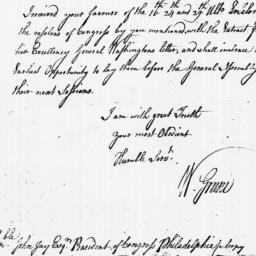 I received your favours of the 16th 24th & 29th Ulto Enclos
the resolves of Congress by you mentioned, with the Extract f
his Excellency General Washingtons letter, and shall embrace t
Earliest Opportunity to lay them before the General Assembly
their next Sessions.
I am with great Truth
your most Obedient
Humble Servt.
W. Greene
John Jay Esqr. President of Congress Philadelphia